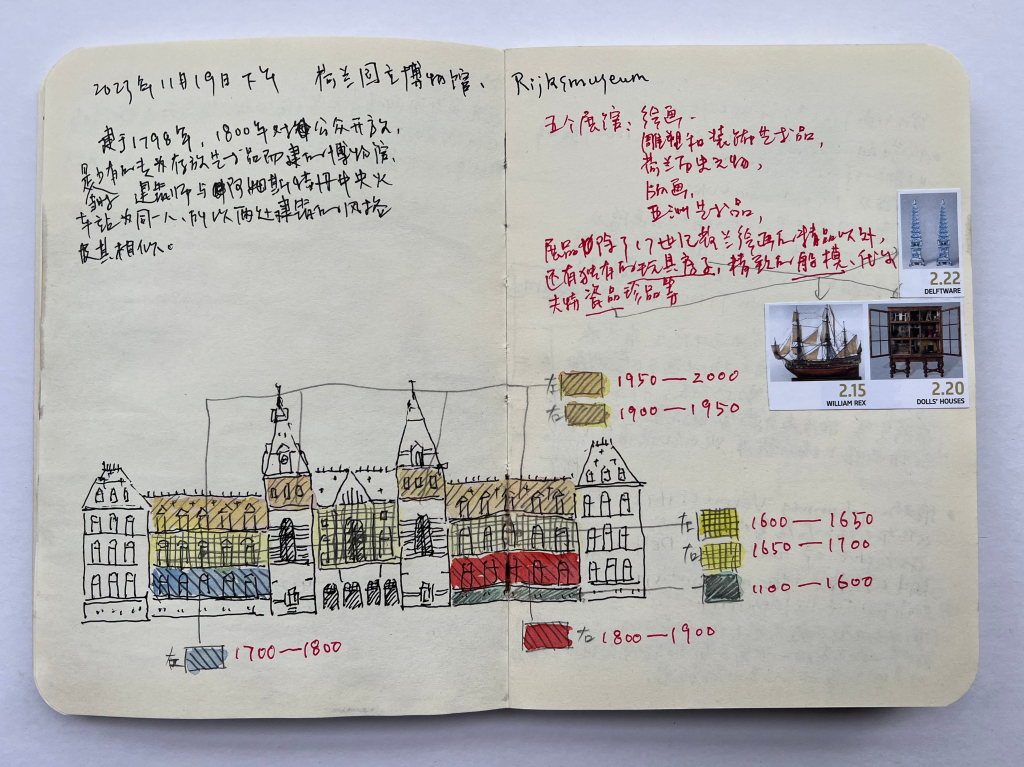 2023年11月19日下午 荷兰国立博物馆、Rijksmuseum
建于1798年，1800年对公众开放，
是当时专为存放艺术品而建的博物馆.
建筑师与阿姆斯特丹中央火
车站为同一人，所以两处建筑的风格
极其相似。
五个展馆：绘画.
雕塑和装饰艺术品，
荷兰历史文物，
版画，
亚洲艺术品，
展品除了17世纪荷兰绘画的精品以外，
还有独有的玩具房子，精致的船模、代尔
夫特瓷品珍品等
2.22
DELFTWARE
2.15
WILLIAM REX
2.20
DOLLS' HOUSES
左 1950—2000
右 1900—1950
左 1600—1650
右 1650—1700
1100—1600
左 1700—1800
右 1800—1900